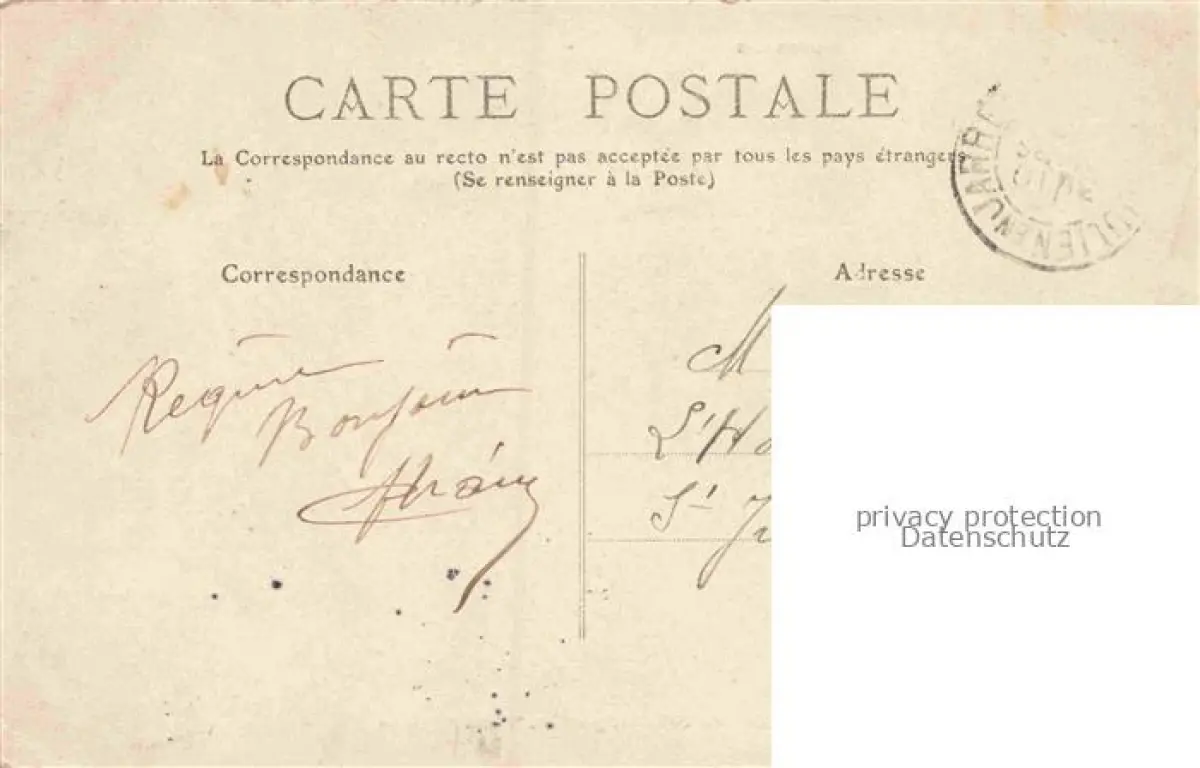 CARTE POSTALE
La Correspondance au recto n'est pas acceptée par tous les pays étrangers
(Se renseigner à la Poste)
Correspondance
Adresse
Bonjour
M
L'Ho
St Ju
privacy protection
Datenschutz